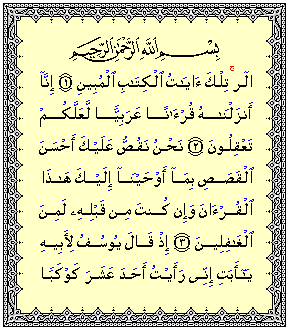 بِسْمِ ٱللَّهِ ٱلرَّحْمَٰنِ ٱلرَّحِيمِ
الٓر ۚ تِلْكَ ءَايَٰتُ ٱلْكِتَٰبِ ٱلْمُبِينِ ١ إِنَّآ
أَنزَلْنَٰهُ قُرْءَٰنًا عَرَبِيًّا لَّعَلَّكُمْ
تَعْقِلُونَ ٢ نَحْنُ نَقُصُّ عَلَيْكَ أَحْسَنَ
ٱلْقَصَصِ بِمَآ أَوْحَيْنَآ إِلَيْكَ هَٰذَا
ٱلْقُرْءَانَ وَإِن كُنتَ مِن قَبْلِهِۦ لَمِنَ
ٱلْغَٰفِلِينَ ٣ إِذْ قَالَ يُوسُفُ لِأَبِيهِ
يَٰٓأَبَتِ إِنِّى رَأَيْتُ أَحَدَ عَشَرَ كَوْكَبًا